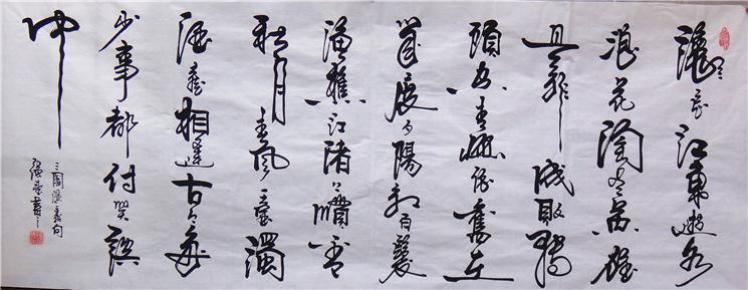 滚〻长江東逝水
浪花淘尽英雄
是非成敗轉
頭空青山依舊在
幾度夕陽紅白髮
漁樵江渚上慣看
秋月春風一壺濁
酒喜相逢古今多
少事都付笑談
中
三國演義句